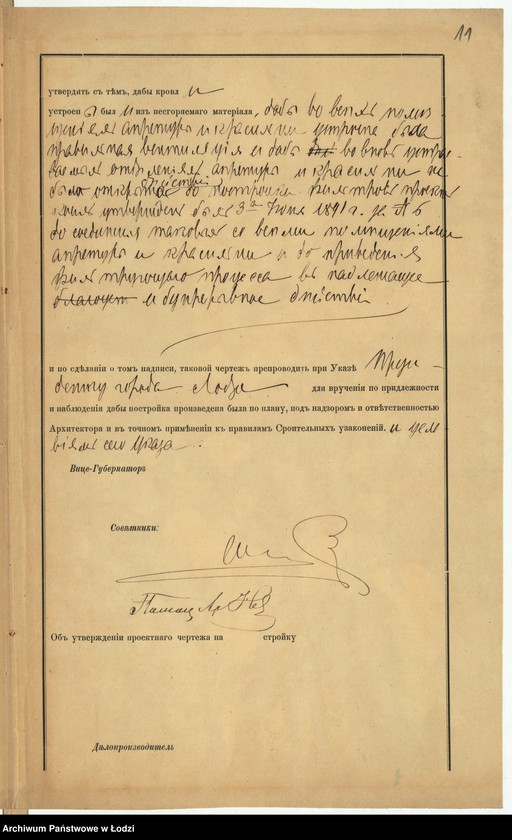 11
утвердить съ тѣмъ, дабы кровля и
устроен ы был и изъ несгораемаго матеріала, дабы во всѣхъ помѣ-
щеніяхъ апретуры и красильни устроена была
правильная вентиляція и дабы во вновь устраи-
ваемыхъ отдѣленіяхъ апретуры и красильни не
было открыто дѣйствій до постройки фильтровъ проектъ
коихъ утвержденъ былъ 3го Іюня 1891 г. за № 6
до соединенія таковыхъ со всѣми помѣщеніями
апретуры и красильни и до приведенія
фильтрующаго процесса въ надлежащее
и безпрерывное дѣйствіе
и по сдѣланіи о томъ надписи, таковой чертежъ препроводить при Указѣ Прези-
денту города Лодзи для врученія по придлежности
и наблюденія дабы постройка произведена была по плану, подъ надзоромъ и отвѣтственностью
Архитектора и въ точномъ примѣненіи къ правиламъ Сроительныхъ узаконеній. и усло
віямъ сего Указа
Вице-Губернаторъ
Совѣтники:
Объ утвержденіи проектнаго чертежа на стройку
Дѣлопроизводитель
Archiwum Państwowe w Łodzi